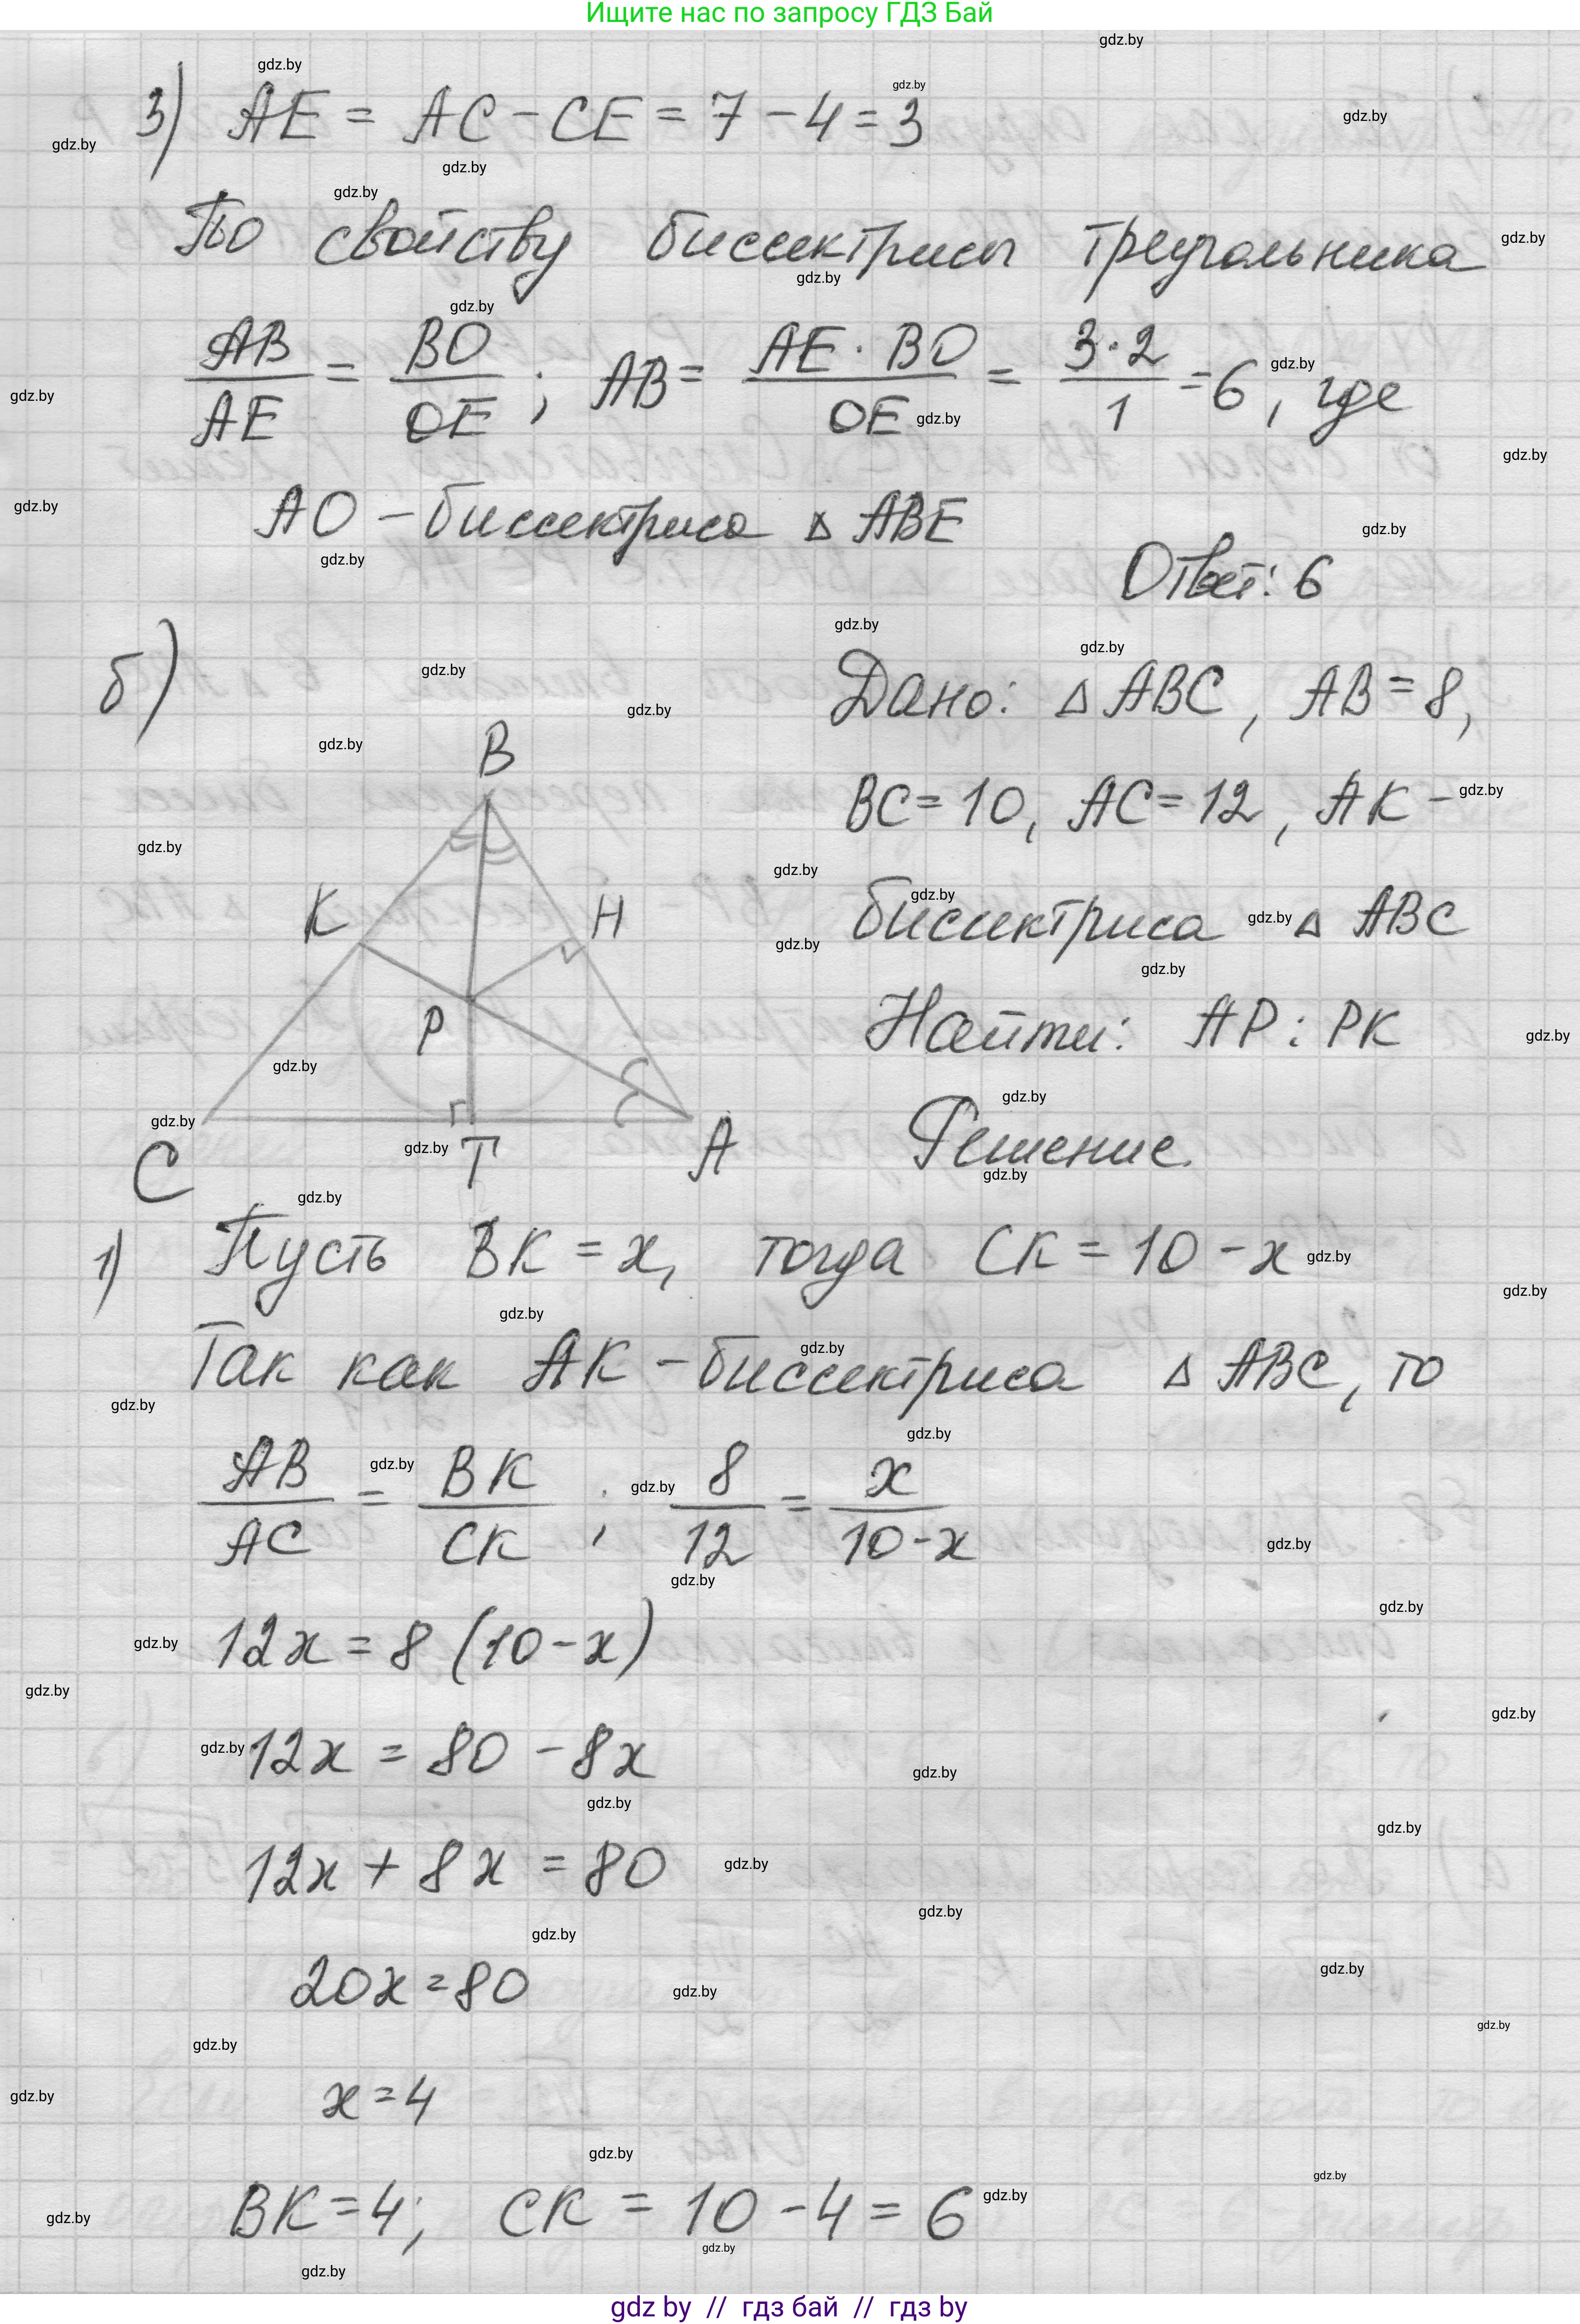 Ищите нас по запросу ГДЗ Бай
3) AE = AC - CE = 7 - 4 = 3
По свойству биссектрисы треугольника
AB/AE = BO/OE ; AB = AE · BO/OE = 3·2/1 = 6, где
AO - биссектриса △ ABE
Ответ: 6
б)
Дано: △ ABC, AB = 8,
BC = 10, AC = 12, AK -
биссектриса △ ABC
Найти: AP : PK
Решение.
B
K
H
P
C
T
A
1) Пусть BK = x, тогда CK = 10 - x
Так как AK - биссектриса △ ABC, то
AB/AC = BK/CK ; 8/12 = x/10-x
12x = 8 (10 - x)
12x = 80 - 8x
12x + 8x = 80
20x = 80
x = 4
BK = 4; CK = 10 - 4 = 6
gdz by // гдз бай // гдз by